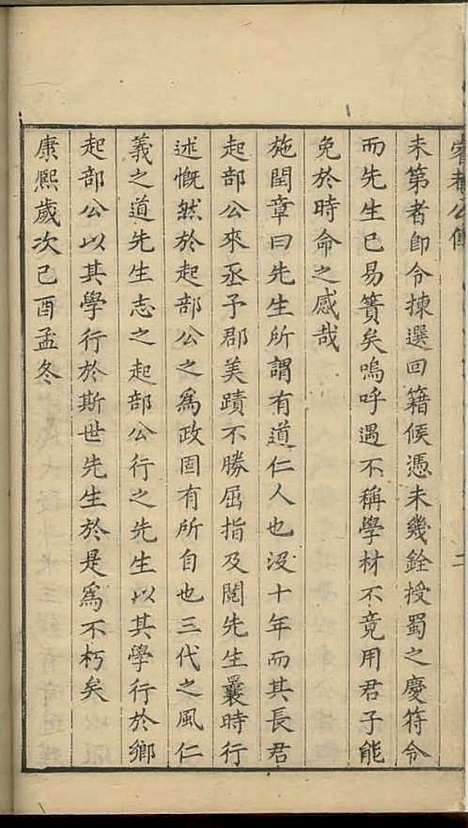 未第者卽令揀選回籍候憑未幾銓授蜀之慶符令
而先生已易簀矣嗚呼遇不稱學材不竟用君子能
免於時命之感哉
施閏章曰先生所謂有道仁人也沒十年而其長君
起部公來丞予郡美蹟不勝屈指及閱先生曩時行
述慨然於起部公之為政固有所自也三代之風仁
義之道先生志之起部公行之先生以其學行於鄉
起部公以其學行於斯世先生於是為不朽矣
康熙歲次己酉孟冬